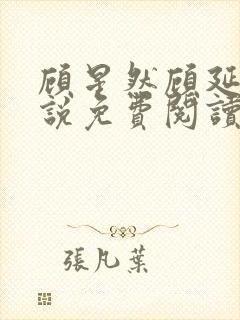 顾星然顾延
說免費閱讀
張凡葉